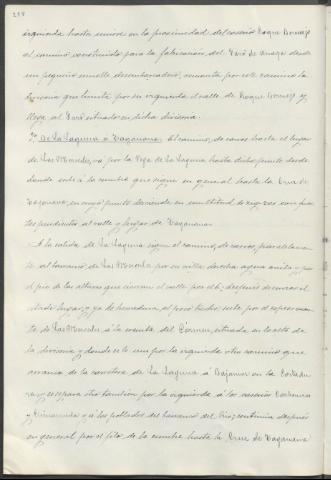 218
izquierda hasta unirse en la proximidad del caserío Roque Bermejo
al camino construido para la fabricación del Faro de Anaga desde
un pequeño muelle desembarcadero, remonta por este camino la
divisoria que limita por su izquierda el valle de Roque Bermejo y
llega al Faro situado en dicha divisoria.
2º De La Laguna á Taganana. El camino, de carros hasta el lugar
de Las Mercedes, va por la Vega de La Laguna hasta dicho punto desde
donde sube á la cumbre que sigue en general hasta la Cruz de
Taganana, en cuyo punto desciende en multitud de zig-zag con fuertes
pendientes al valle y lugar de Taganana.
A la salida de La Laguna sigue el camino, de carros, paralelamente
al barranco de Las Mercedes por su orilla derecha agua arriba y por
el pie de las alturas que cierran el valle por el E., después de cruzar el
citado lugar, ya de herradura, al poco trecho sube por el
de Las Mercedes á la ermita del Carmen, situada en lo alto de
la divisoria y donde se le une por la izquierda otro camino que
arranca de la carretera de La Laguna á Bajamar en la
y se separa otro también por la izquierda á los caseríos
y á los poblados del barranco del Río; continúa después
en general por el filo de la cumbre hasta la Cruz de Taganana